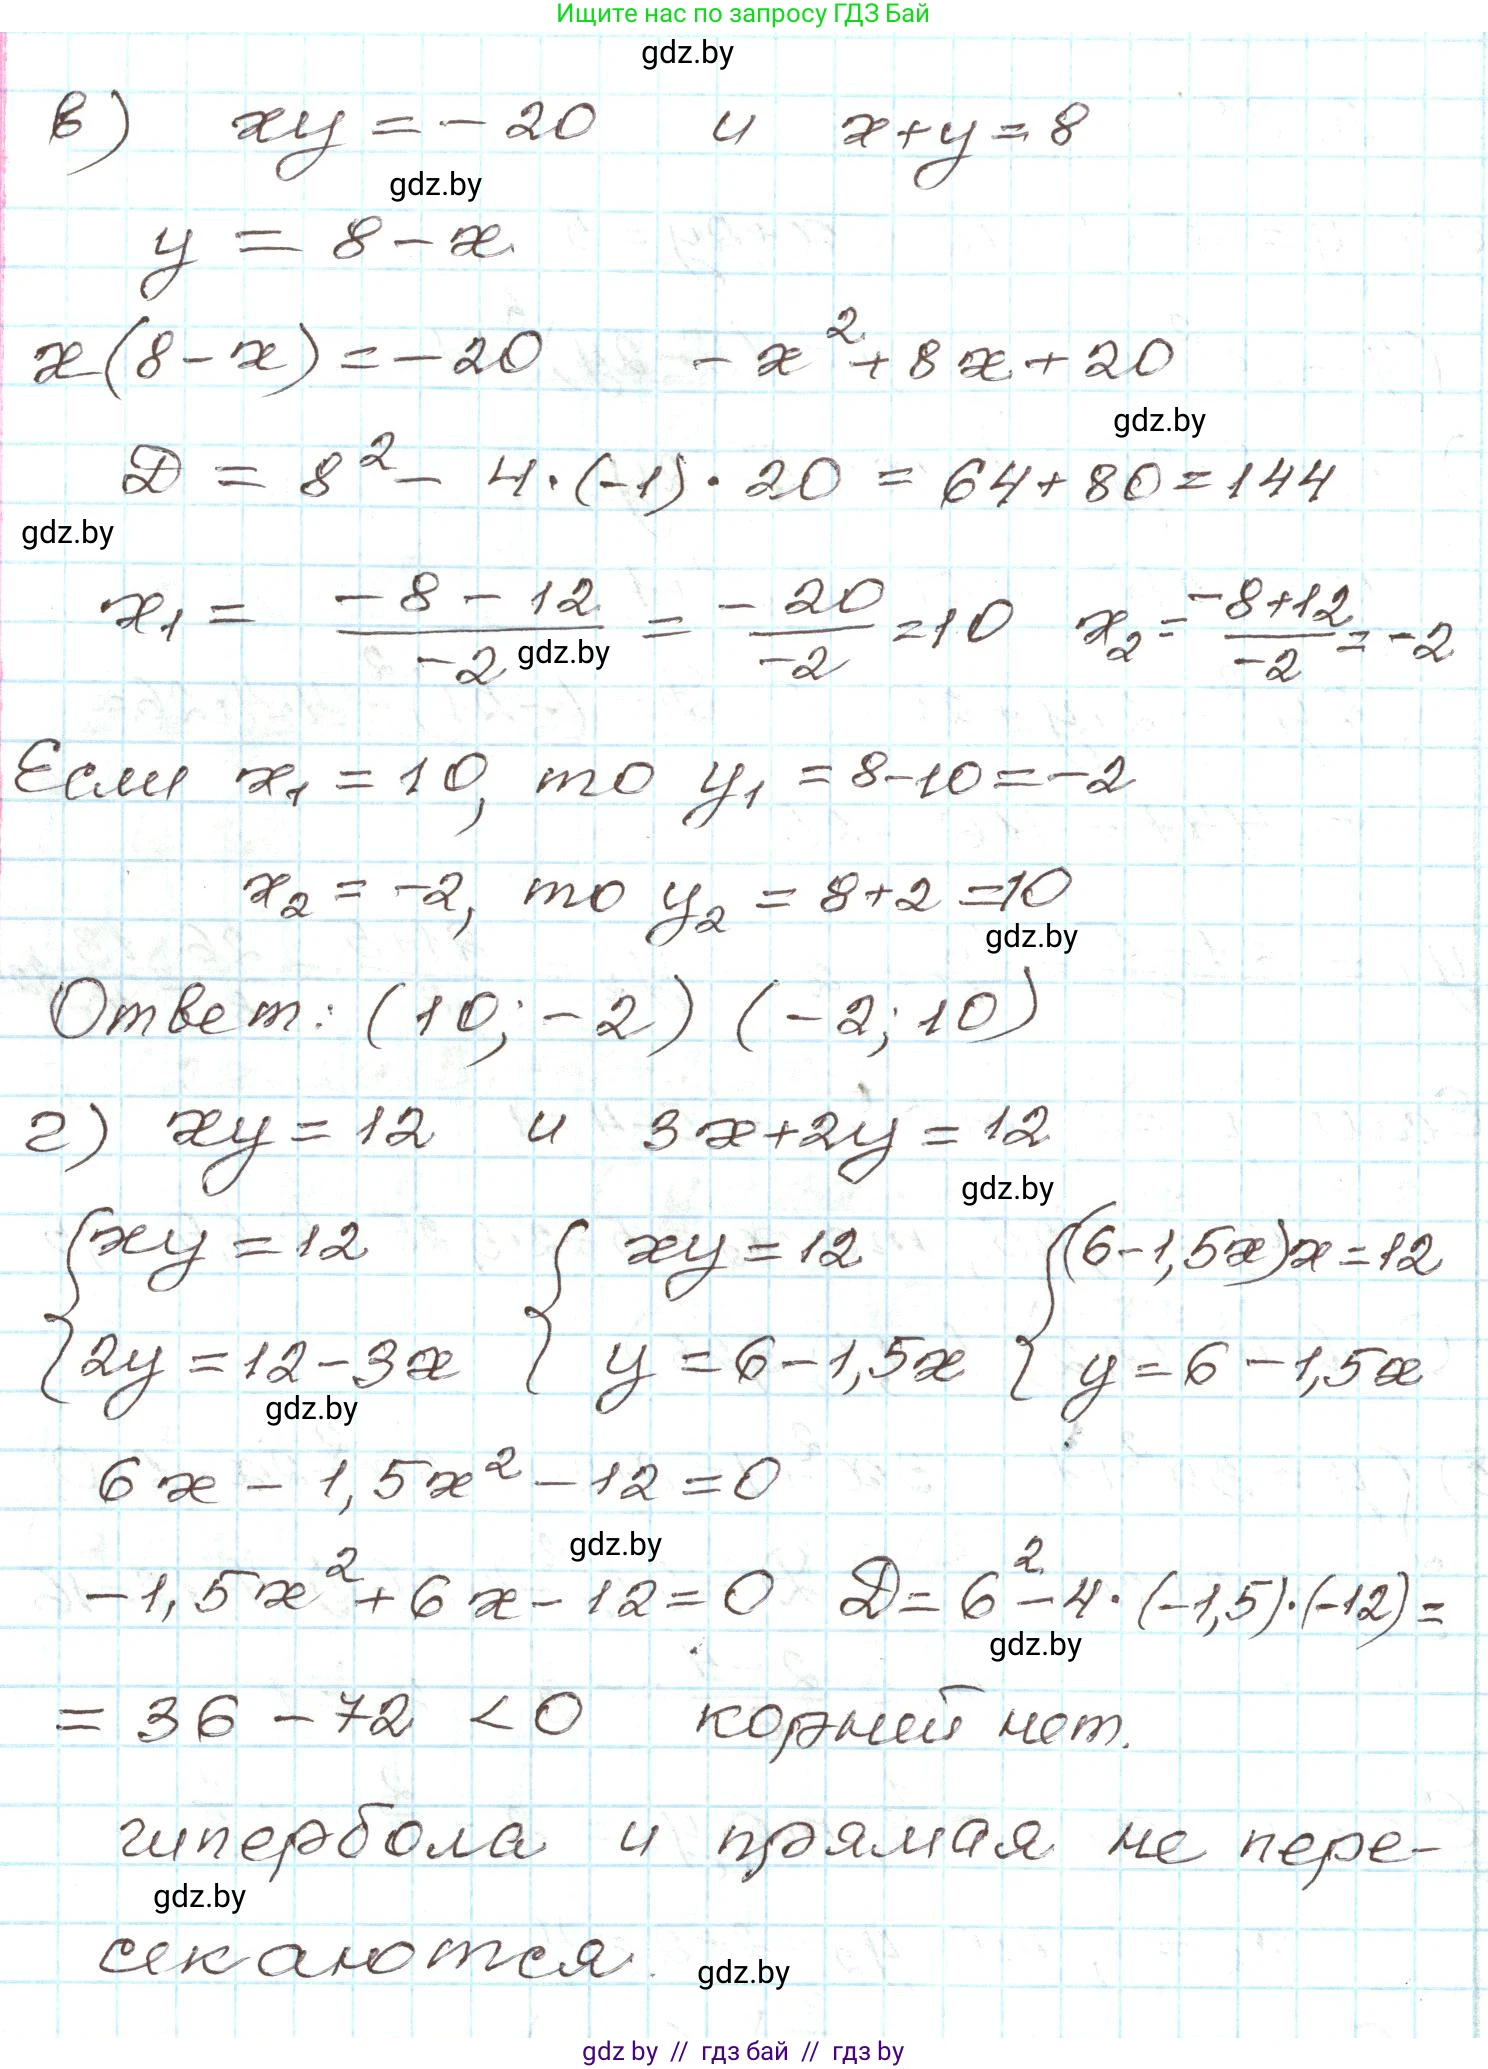 Ищите нас по запросу ГДЗ Бай
gdz.by
в) xy = -20 и x+y=8
gdz.by
y = 8-x
x(8-x)=-20 -x²+8x+20
gdz.by
D = 8² - 4·(-1)·20 = 64+80=144
gdz.by
x₁ = (-8-12)/(-2) = (-20)/(-2) = 10 x₂ = (-8+12)/(-2) = -2
gdz.by
Если x₁ = 10, то y₁ = 8-10=-2
x₂ = -2, то y₂ = 8+2=10
gdz.by
Ответ: (10; -2) (-2; 10)
г) xy=12 и 3x+2y=12
gdz.by
{xy=12 {xy=12 {(6-1,5x)x=12
{2y=12-3x {y=6-1,5x {y=6-1,5x
gdz.by
6x - 1,5x² - 12 = 0
gdz.by
-1,5x²+6x-12=0 D=6²-4·(-1,5)·(-12)=
gdz.by
= 36 - 72 < 0 корней нет.
гипербола и прямая не пере-
gdz.by
секаются.
gdz.by
gdz.by // гдз бай // гдз by